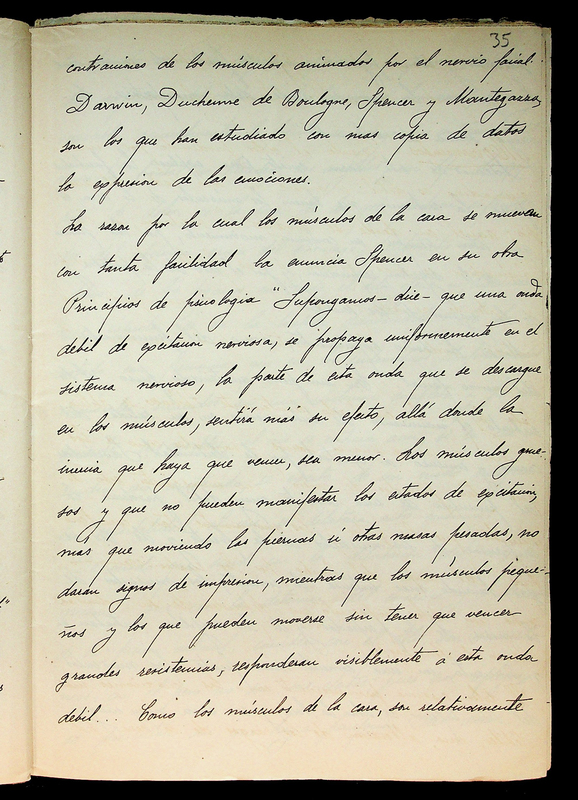 35
contracciones de los músculos animados por el nervio facial.
Darwin, Duchenne de Boulogne, Spencer y Mantegazza,
son los que han estudiado con mas copia de datos
la expresion de las emociones.
La razon por la cual los músculos de la cara se mueven
con tanta facilidad la enuncia Spencer en su obra
Principios de psicologia "Supongamos – dice – que una onda
debil de excitacion nerviosa, se propaga uniformemente en el
sistema nervioso, la parte de esta onda que se descargue
en los músculos, sentirá más su efecto, allá donde la
inercia que haya que vencer, sea menor. Los músculos grue-
sos y que no pueden manifestar los estados de excitacion,
más que moviendo las piernas ú otras masas pesadas, no
daran signos de impresion, mientras que los músculos peque-
ños y los que pueden moverse sin tener que vencer
grandes resistencias, responderan visiblemente á esta onda
debil... Como los músculos de la cara, son relativamente